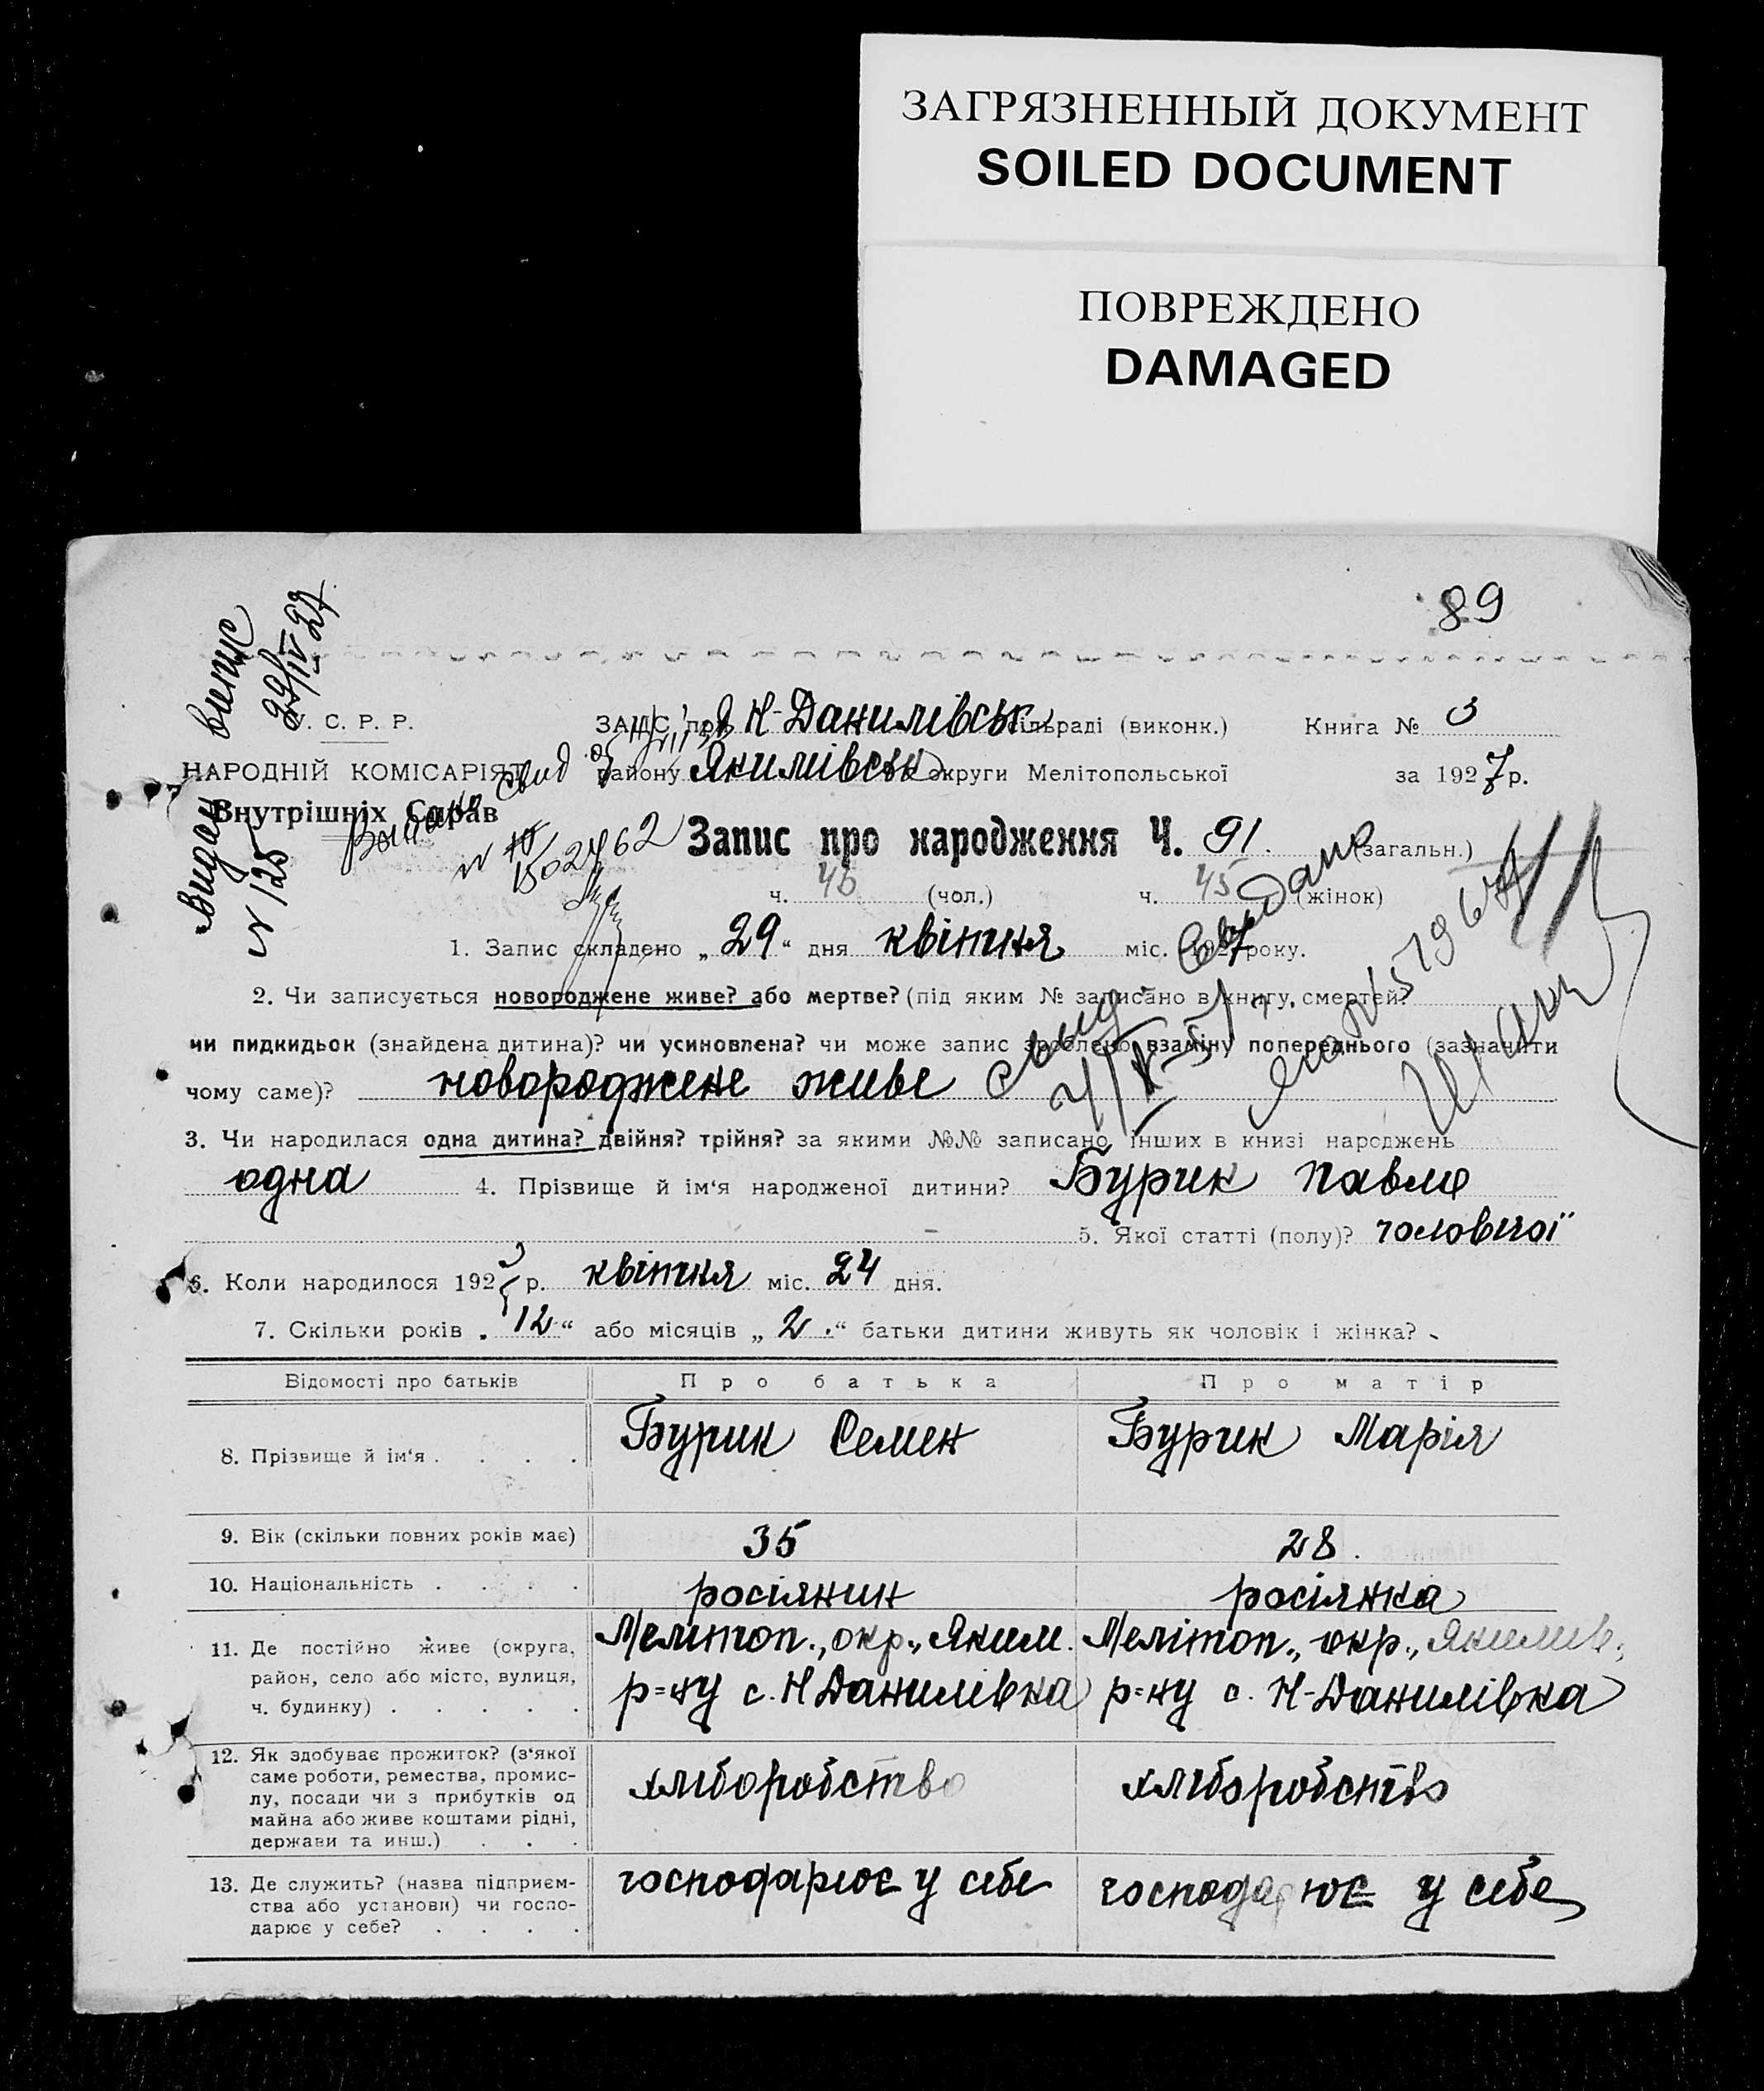 ЗАГРЯЗНЕННЫЙ ДОКУМЕНТ
SOILED DOCUMENT
ПОВРЕЖДЕНО
DAMAGED
89
Видан випис
№ 125 29/IV 27
У. С. Р. Р.
НАРОДНІЙ КОМІСАРІЯТ
Внутрішніх Справ
ЗАГС при Н-Данилівськ сільраді (виконк.) Книга № 3
району Якимівськ округи Мелітопольської за 1927 р.
Запис про народження Ч. 91. (загальн.)
ч. 46 (чол.) ч. 45 (жінок)
1. Запис складено „29“ дня квітня міс. 1927 року.
2. Чи записується новороджене живе? або мертве? (під яким № записано в книгу смертей?
чи пидкидьок (знайдена дитина)? чи усиновлена? чи може запис зроблено взаміну попереднього (зазначити
чому саме)? новороджене живе
3. Чи народилася одна дитина? двійня? трійня? за якими №№ записано інших в книзі народжень
одна 4. Прізвище й ім'я народженої дитини? Бурик Павло
5. Якої статті (полу)? чоловічої
6. Коли народилося 1927 р. квітня міс. 24 дня.
7. Скільки років „12“ або місяців „2.“ батьки дитини живуть як чоловік і жінка?
Відомості про батьків Про батька Про матір
8. Прізвище й ім'я . . . . Бурик Семен Бурик Марія
9. Вік (скільки повних років має) 35 28.
10. Національність . . . . росіянин росіянка
11. Де постійно живе (округа, Меліtоп., окр., Яким. Мелітоп., окр., Якимів.,
район, село або місто, вулиця, р=ну с. Н Данилівка р=ну с. Н-Данилівка
ч. будинку) . . . . .
12. Як здобуває прожиток? (з'якої
саме роботи, ремества, промис-
лу, посади чи з прибутків од хліборобство хліборобство
майна або живе коштами рідні,
держави та инш.) . . .
13. Де служить? (назва підприєм- господарює у себе господарює у себе
ства або установи) чи госпо-
дарює у себе? . . . .